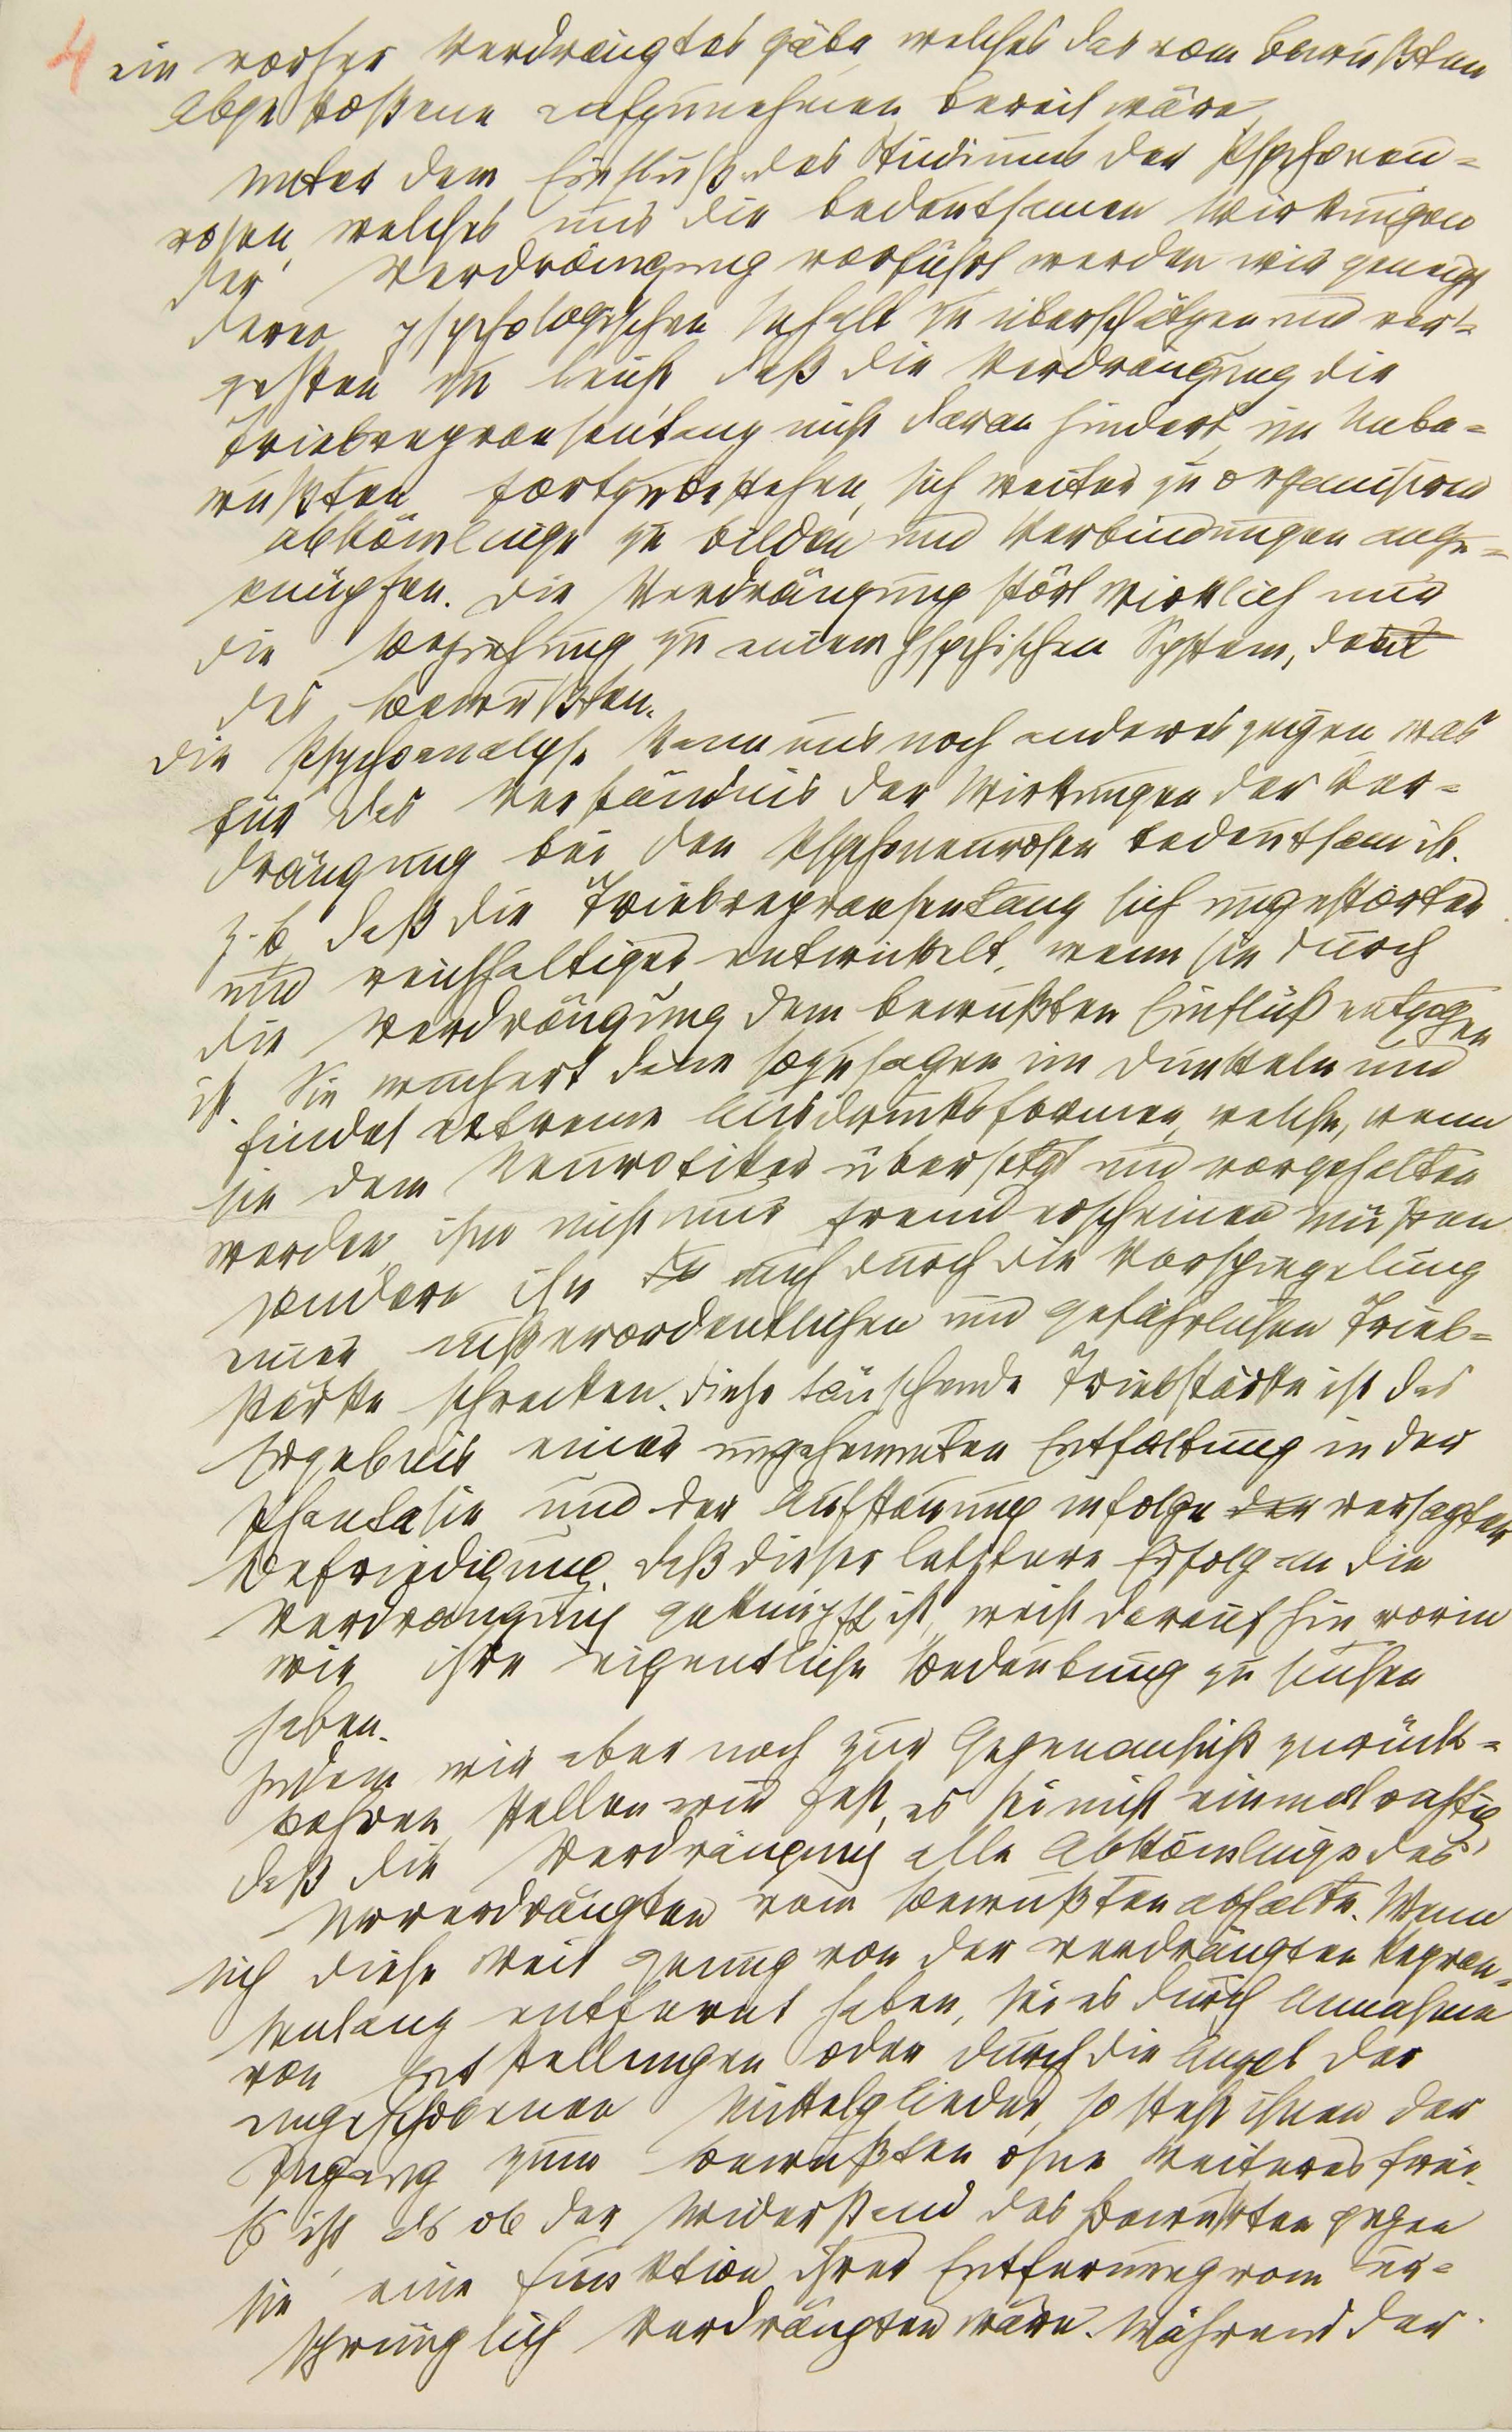 4
ein vorher Verdrängtes gäbe welches das vom Bewußten
Abgestoßene aufzunehmen bereit wäre
Unter dem Einfluß des Studiums der Psychoneu=
rosen, welches uns die bedeutsamen Wirkungen
der Verdrängung vorführt werden wir geneigt
deren psychologischen Inhalt zu überschätzen und ver=
gessen zu leicht daß die Verdrängung die
Triebrepraesentanz nicht daran hindert, im Unbe=
wußten fortzubestehen, sich weiter zu organisiren
Abkömlinge zu bilden und Verbindungen anzu=
knüpfen. Die Verdrängung stört wirklich nur
die Beziehung zu einem psychischen System, dem
des Bewußten.
Die Psychoanalyse kann uns noch anderes zeigen was
für das Verständnis der Wirkungen der Ver=
drängung bei den Psychoneurosen bedeutsam ist.
z.b daß die Triebrepraesentanz sich ungestörter
und reichhaltiger entwickelt, wenn sie durch
die Verdrängung dem bewußten Einfluß entzogen
ist. Sie wuchert dann sozusagen im Dunkeln und
findet extreme Ausdrucksformen, welche, wenn
sie dem Neurotiker übersetzt und vorgehalten
werden ihm nicht nur fremd erscheinen müssen
sondern ihn auch durch die Vorspiegelung
einer außerordentlichen und gefährlichen Trieb=
stärke schrecken. Diese täuschende Triebstärke ist das
Ergebnis einer ungehemmten Entfaltung in der
Phantasie und der Aufstauung infolge der versagter
Befriedigung. Daß dieser letztere Erfolg an die
Verdrängung geknüpft ist, weist darauf hin worin
wir ihre eigentliche Bedeutung zu suchen
haben.
Indem wir aber noch zur Gegenansicht zurück=
kehren, stellen wir fest, es sei nicht einmal richtig,
daß die Verdrängung alle Abkömlinge des
Urverdrängten vom Bewußten abhalte. Wenn
sich diese weit genug von der verdrängten Reprae=
sentanz entfernt haben, sei es durch Annahme
von Entstellungen oder durch die Anzal der
eingeschobenen Mittelglieder, so steht ihnen der
Zugang zum Bewußten ohne Weiteres frei.
Es ist als ob der Widerstand des Bewußten gegen
sie eine Funktion ihrer Entfernung vom ur=
sprünglich Verdrängten wäre. Während der